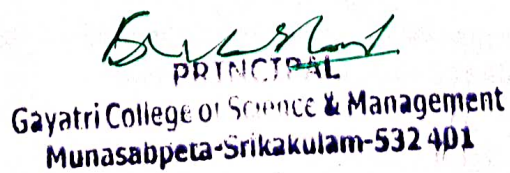 PRINCIPAL
Gayatri College of Science & Management
Munasabpeta-Srikakulam-532 401